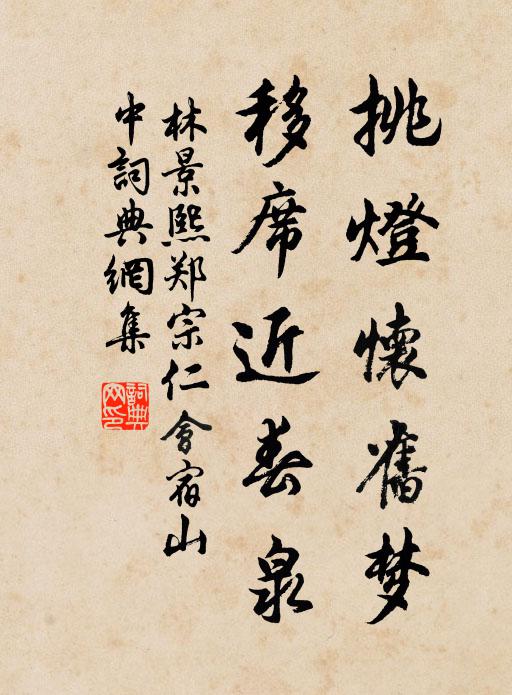 挑燈懷舊梦
移席近春泉
林景熙郑宗仁會宿山
中詞典網集
詞典
网印